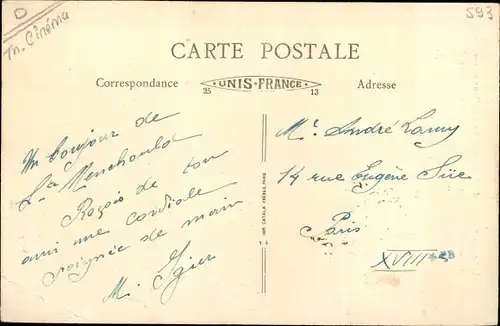 D
Th. Cinéma
593
CARTE POSTALE
Correspondance
UNIS-FRANCE
25
13
Adresse
Un bonjour de
Ste Menehould
Reçois de ton
ami une cordiale
poignée de main
M.
IMP. CATALA FRÈRES, PARIS
Mr André Lamy
14 rue Eugène Süe
Paris
XVIII